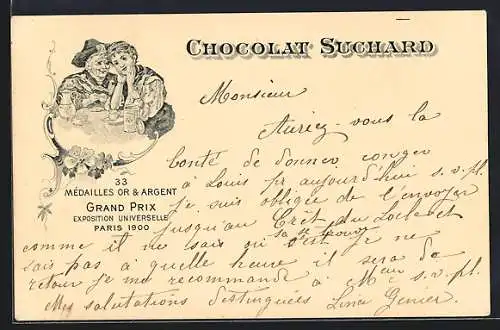 CHOCOLAT SUCHARD
33
MÉDAILLES OR & ARGENT
GRAND PRIX
EXPOSITION UNIVERSELLE
PARIS 1900
Monsieur
Auriez-vous la
bonté de donner congé
à Louis pr aujourd'hui s.v.pl.
je suis obligée de l'envoyer
jusqu'au Crêt du Locle et
comme il ne sais où se trouve je ne
sais pas à quelle heure il sera de
retour je me recommande à s.v.pl.
Mes salutations distinguées Lina